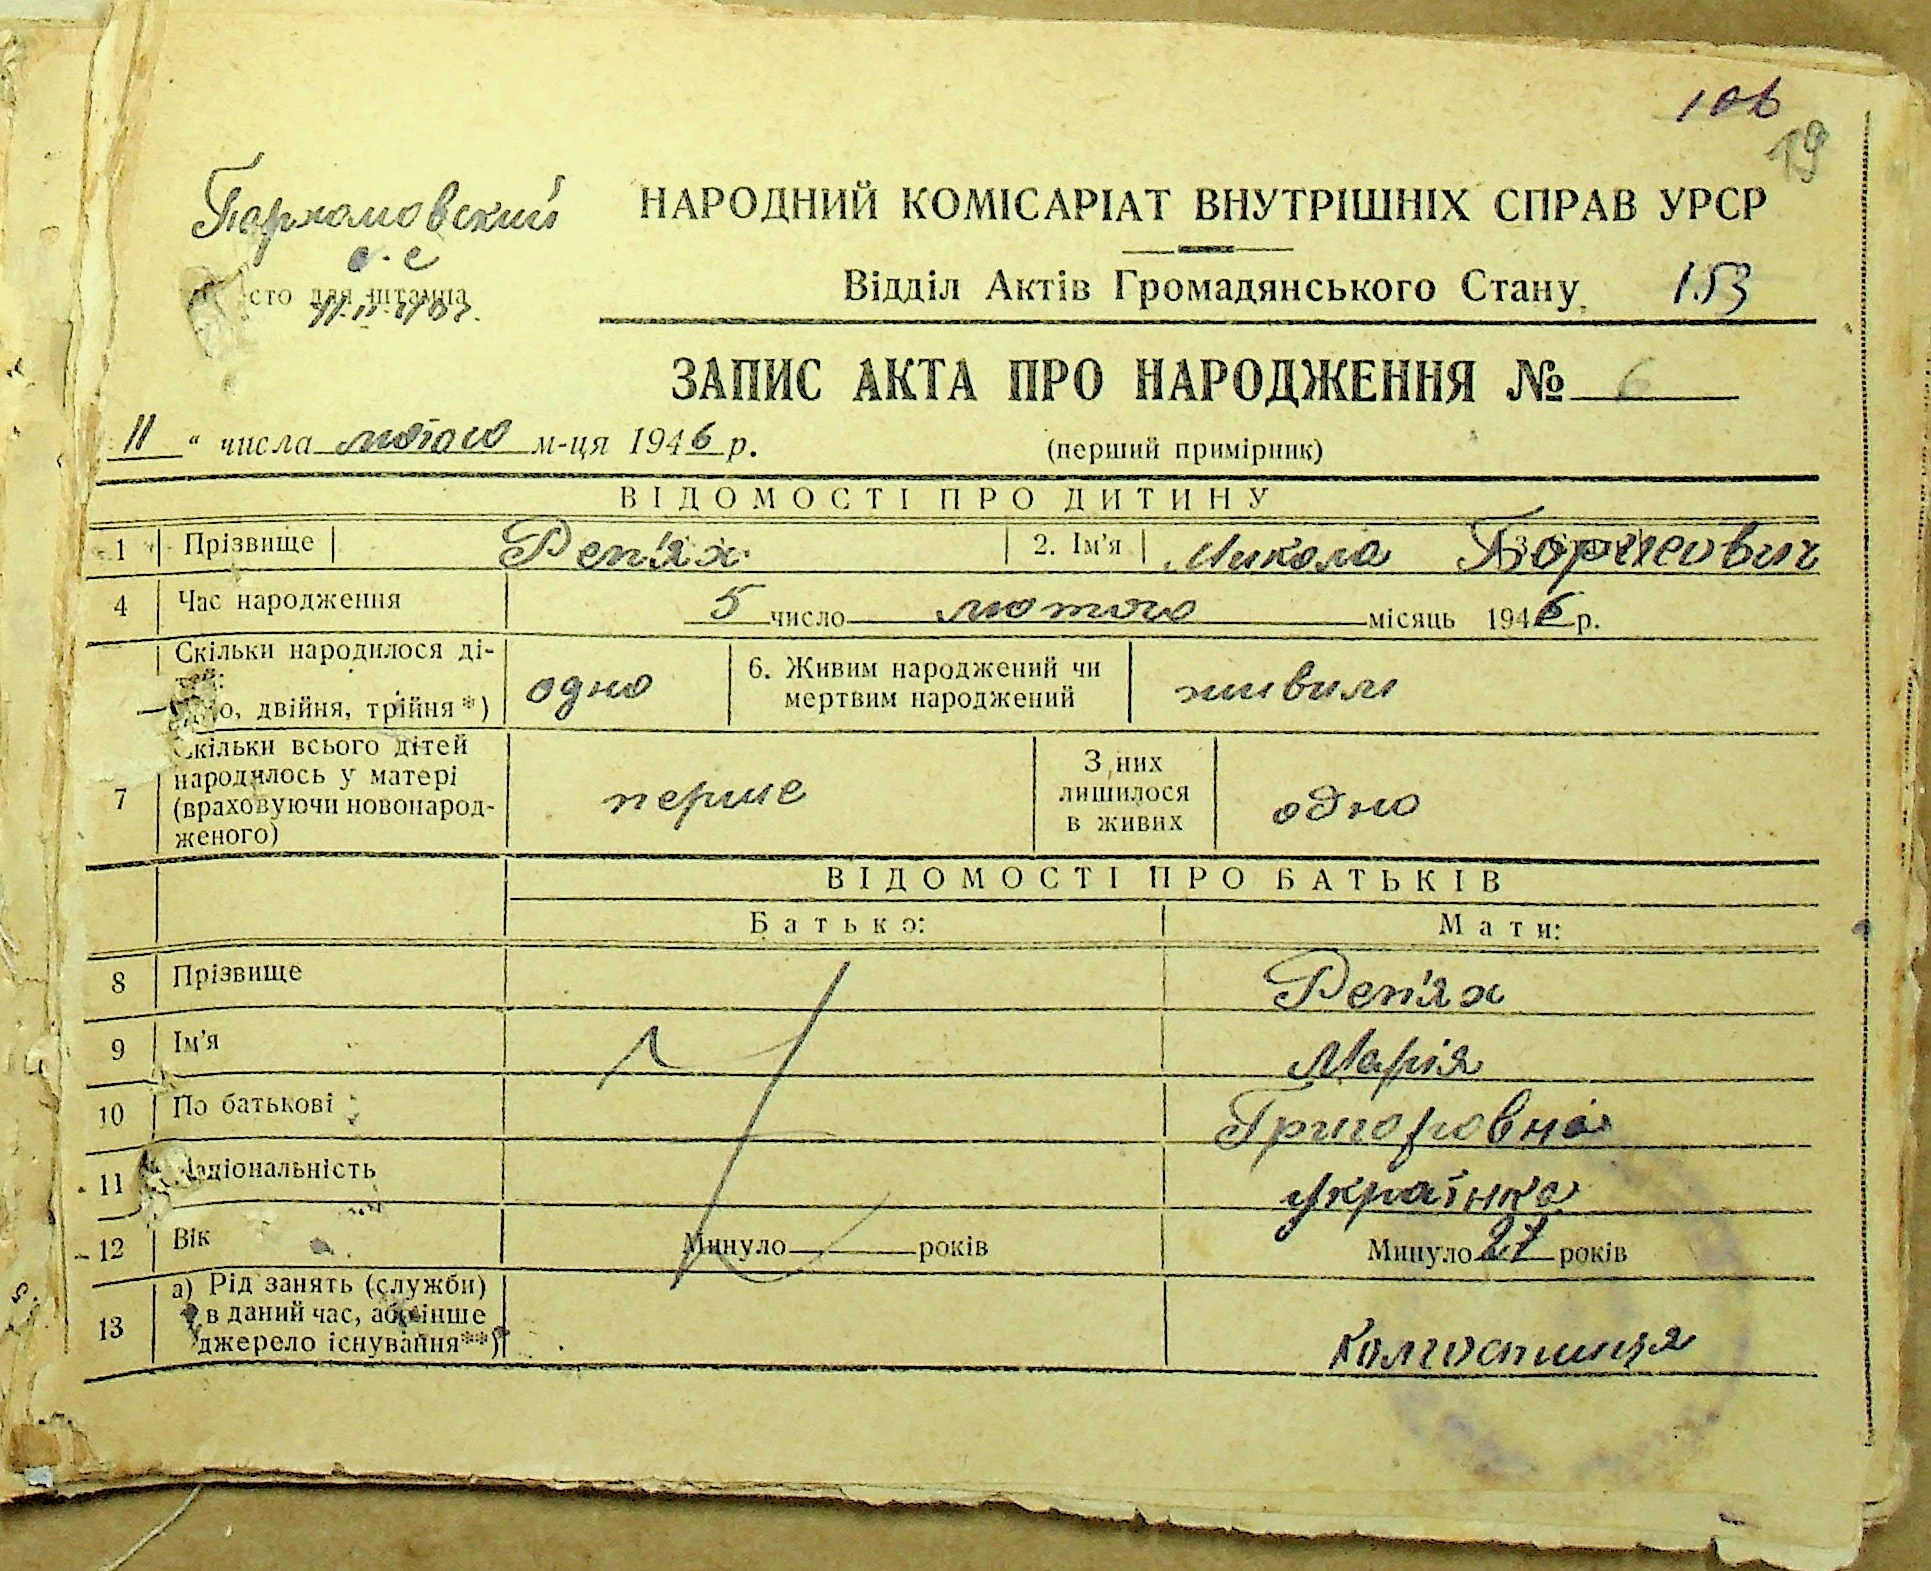 106
19
Пархомовский
с. с
НАРОДНИЙ КОМІСАРІАТ ВНУТРІШНІХ СПРАВ УРСР
сто для штампа
Відділ Актів Громадянського Стану 153
ЗАПИС АКТА ПРО НАРОДЖЕННЯ № 6
11 " числа лютого м-ця 1946 р. (перший примірник)
ВІДОМОСТІ ПРО ДИТИНУ
1 Прізвище Реп'ях 2. Ім'я Микола Борисович
4 Час народження 5 число лютого місяць 1946 р.
Скільки народилося ді-
тей:
о, двійня, трійня *) одно 6. Живим народжений чи
мертвим народжений живим
7 Скільки всього дітей
народилось у матері
(враховуючи новонарод-
женого) перше З них
лишилося
в живих одно
ВІДОМОСТІ ПРО БАТЬКІВ
Батько: Мати:
8 Прізвище Реп'ях
9 Ім'я Марія
10 По батькові Григоровна
11 Національність українка
12 Вік Минуло років Минуло 27 років
13 а) Рід занять (служби)
в даний час, або інше
джерело існування**) колгоспниця